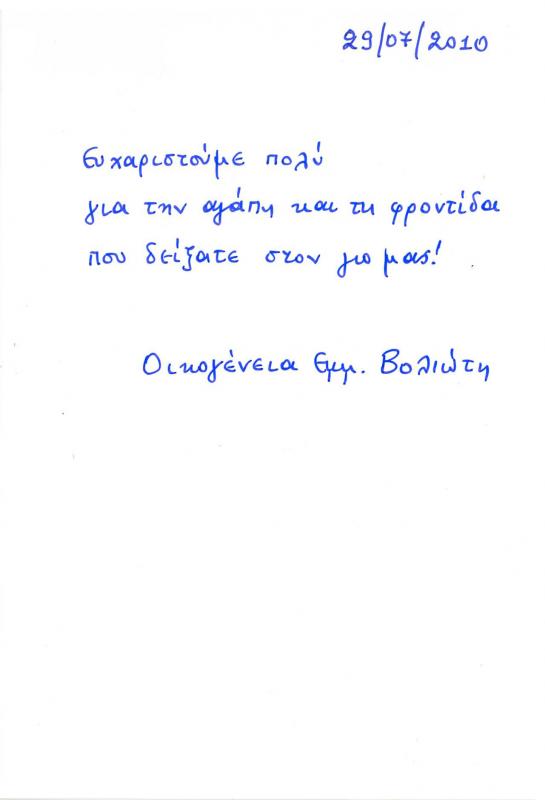 29/07/2010
Ευχαριστούμε πολύ
για την αγάπη και τη φροντίδα
που δείξατε στον γιο μας!
Οικογένεια Εμμ. Βολιώτη